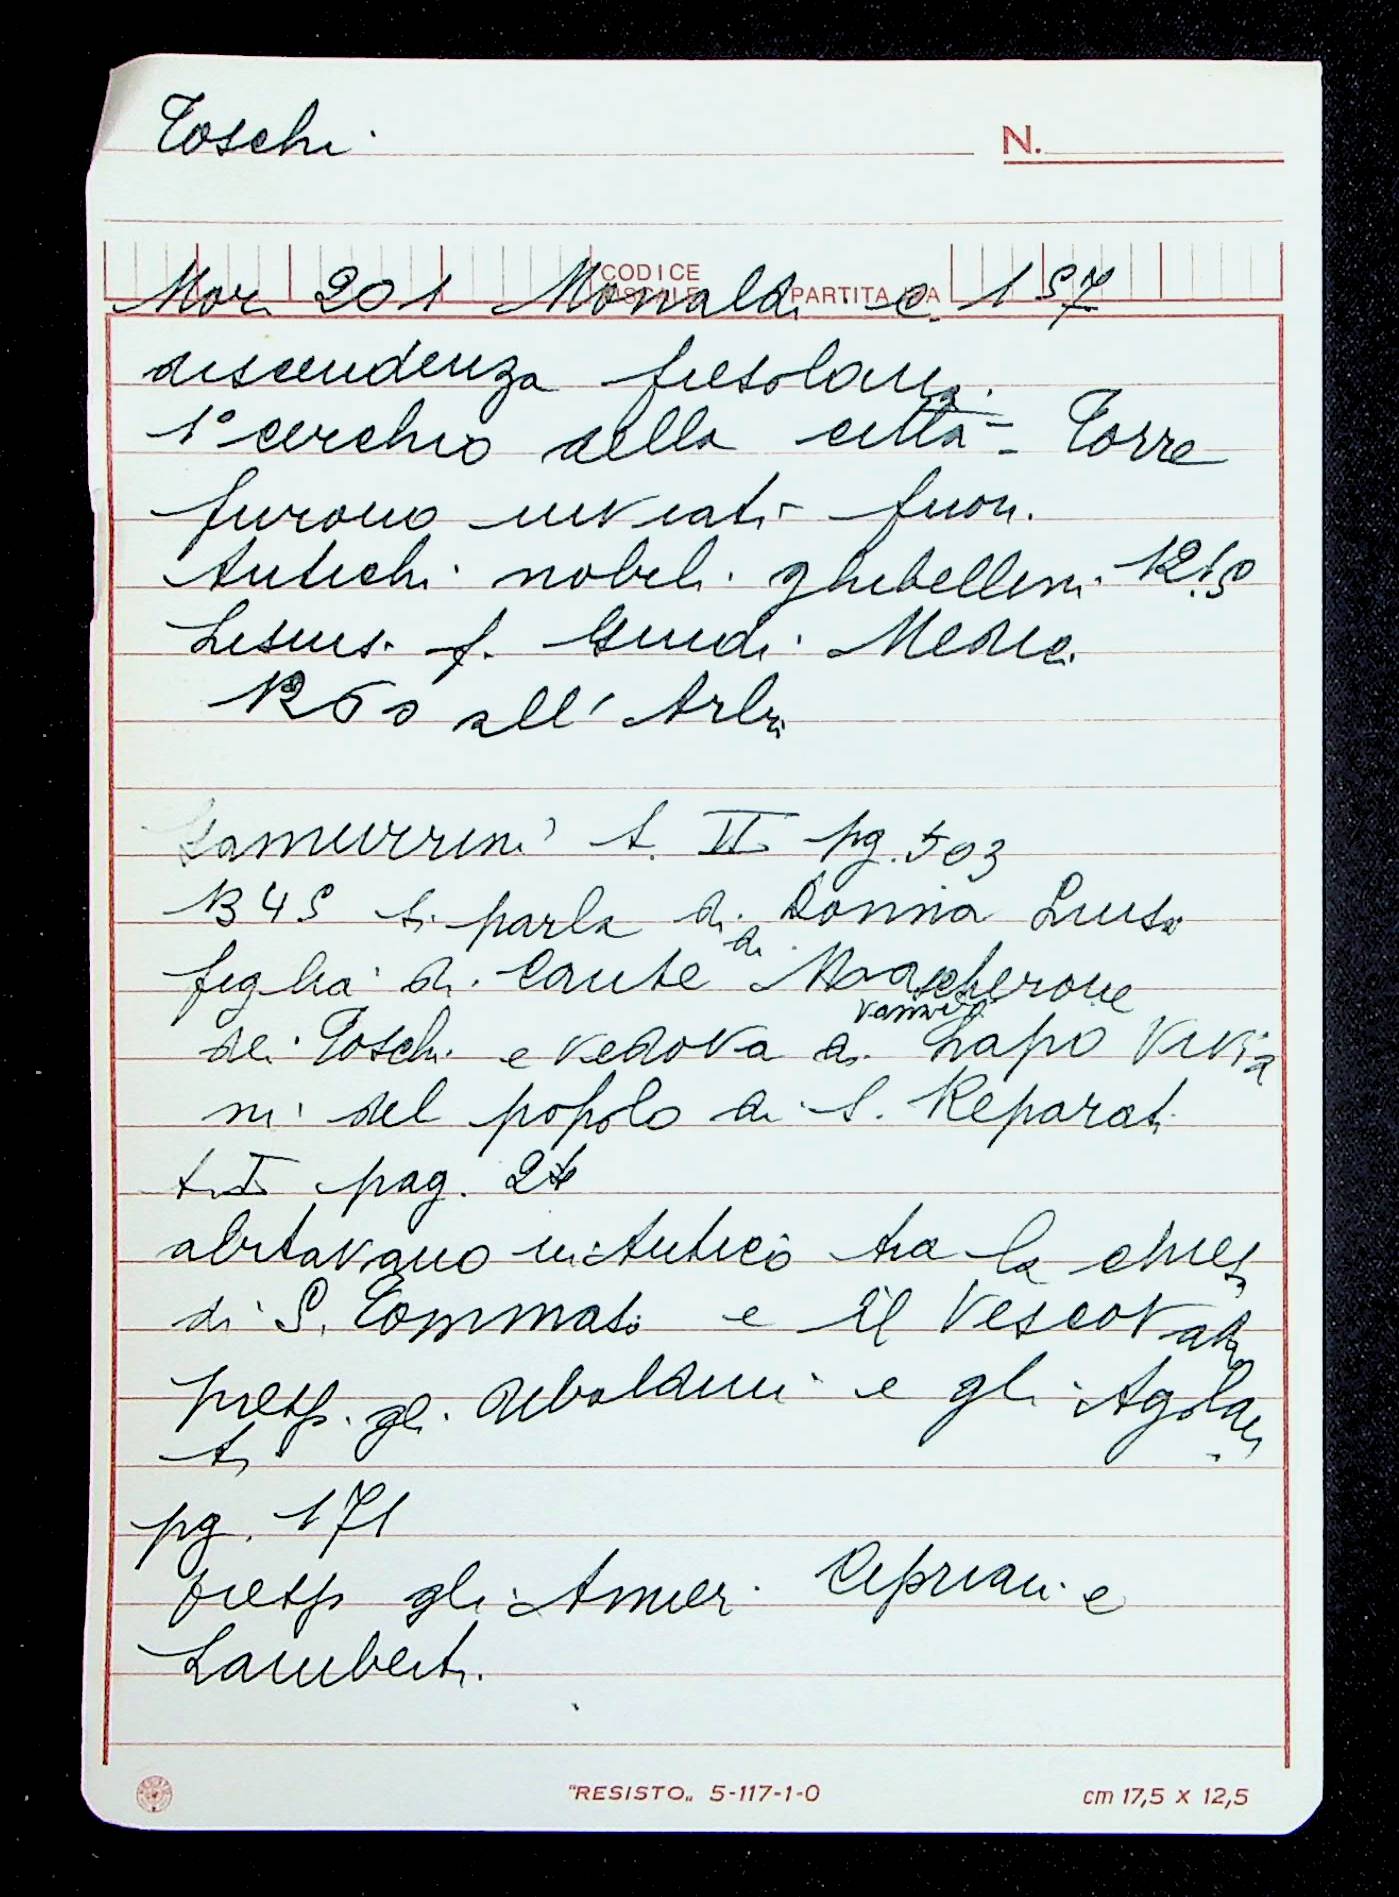 Toschi
N.
CODICE FISCALE PARTITA IVA
Mor. 201 Monaldi c. 157
discendenza fiesolana.
1° cerchio della città - Torre
furono inviati fuori.
Antichi nobili ghibellini 1215
f. Guidi Medic.
1260 all' Arbia
Gamurrini t. II pg. 503
1345 si parla di Donna Luisa
figlia di Cante di Mascherone
dei Toschi e vedova di Lapo Vanni Vivia
ni del popolo di S. Reparat.
t. I pag.
abitavano in antico tra la chiesa
di S. Tommaso e il Vescovado
press. gli Ubaldini e gli Agolan
ti
pg. 171
press gli Amieri Cipriani e
Lamberti.
"RESISTO„ 5-117-1-0
cm 17,5 x 12,5